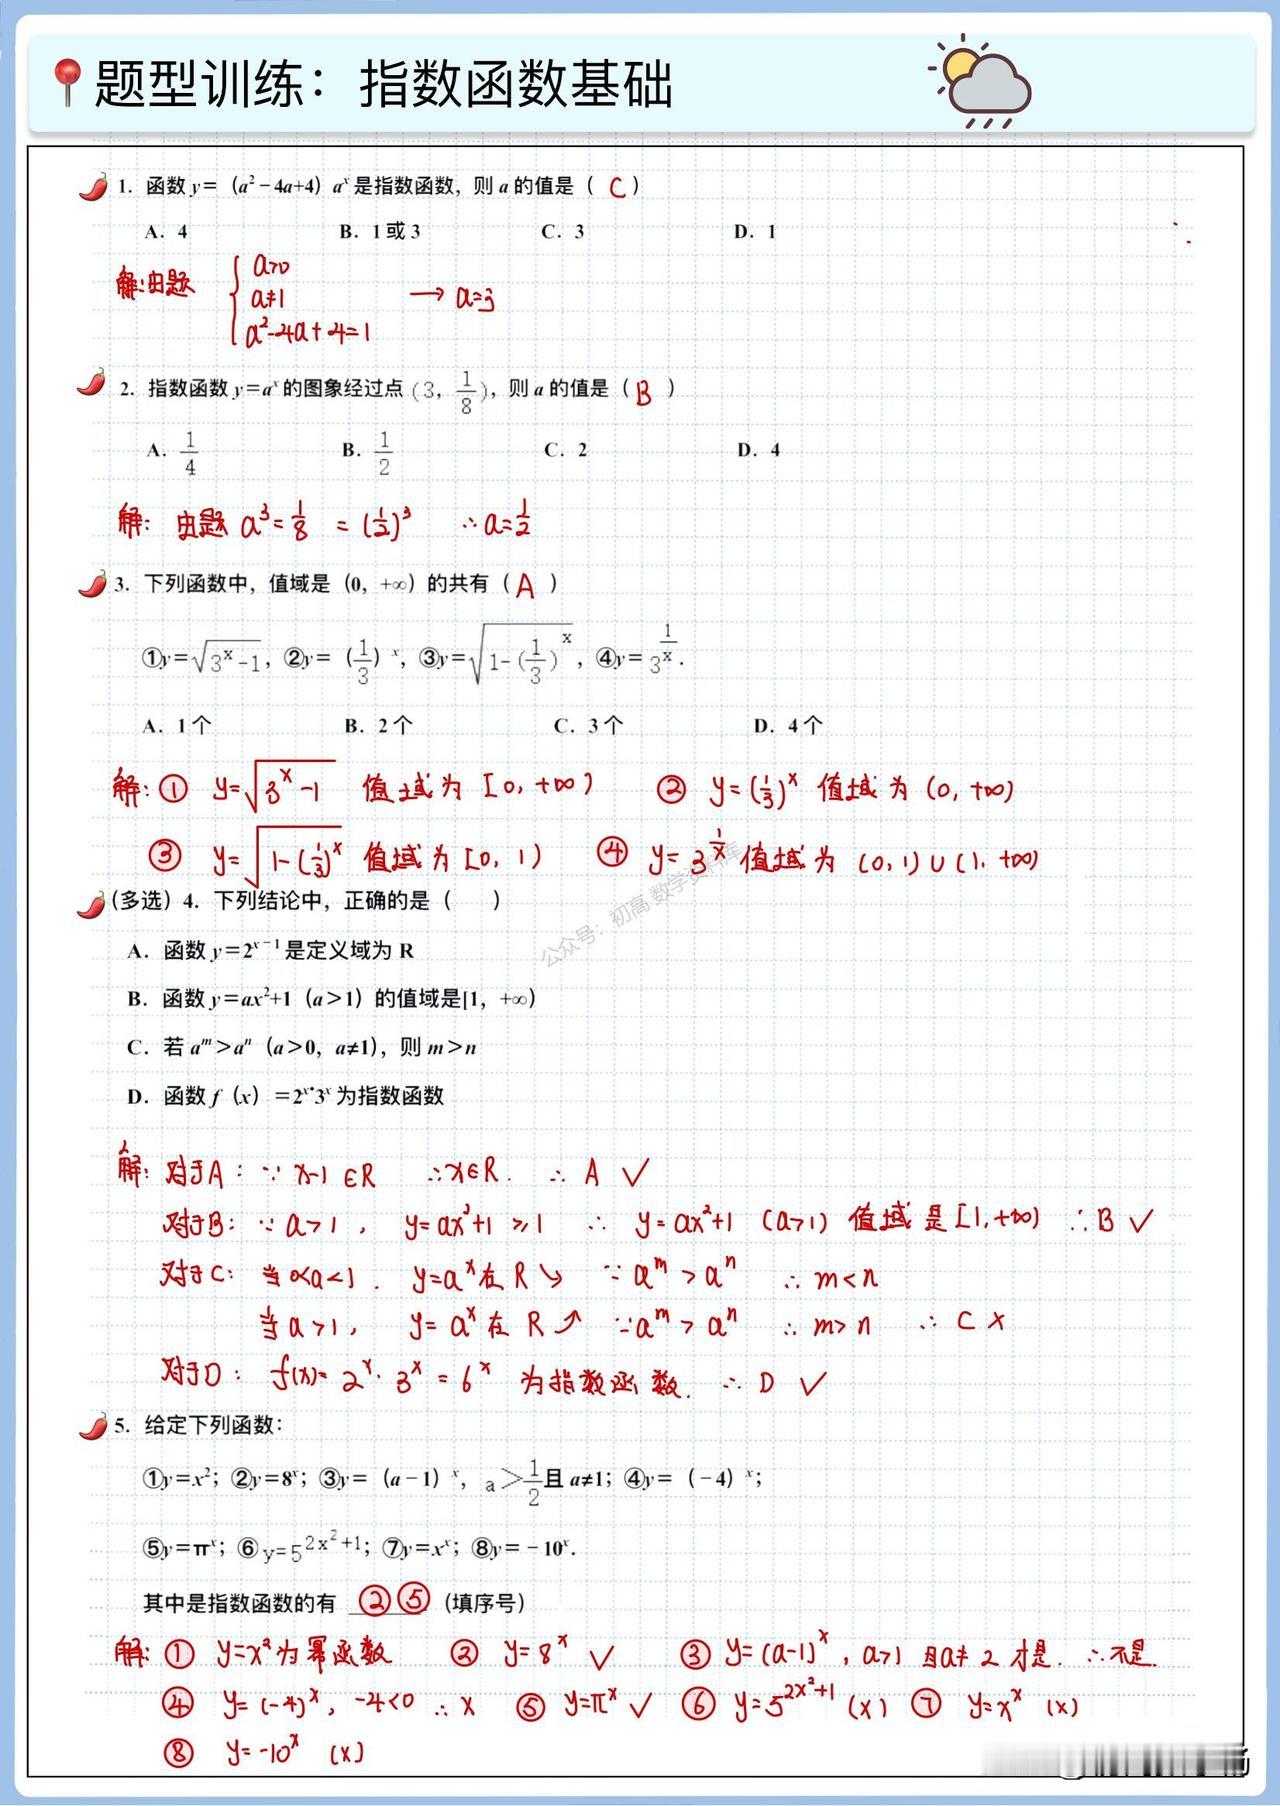 题型训练：指数函数基础
1. 函数 y＝（a²－4a+4）aˣ 是指数函数，则 a 的值是（ C ）
A．4 B．1 或 3 C．3 D．1
解：由题 { a>0
a≠1 → a=3
a²-4a+4=1
2. 指数函数 y＝aˣ 的图象经过点 (3, 1/8)，则 a 的值是（ B ）
A．1/4 B．1/2 C．2 D．4
解：由题 a³=1/8 =(1/2)³ ∴a=1/2
3. 下列函数中，值域是（0，+∞）的共有（ A ）
①y＝√(3ˣ-1)，②y＝（1/3）ˣ，③y＝√(1-(1/3)ˣ)，④y＝3^(1/x).
A．1个 B．2个 C．3个 D．4个
解：① y=√(3ˣ-1) 值域为 [0,+∞) ② y=(1/3)ˣ 值域为 (0,+∞)
③ y=√(1-(1/3)ˣ) 值域为 [0,1) ④ y=3^(1/x) 值域为 (0,1)∪(1,+∞)
公众号：初高数学资料库
（多选）4．下列结论中，正确的是（ ）
A．函数 y＝2ˣ⁻¹ 是定义域为 R
B．函数 y＝ax²+1（a＞1）的值域是[1，+∞）
C．若 aᵐ＞aⁿ（a＞0，a≠1），则 m＞n
D．函数 f（x）＝2ˣ•3ˣ 为指数函数
解：对于A：∵ x-1∈R ∴x∈R. ∴ A ✓
对于B：∵ a>1， y=ax²+1 ≥1 ∴ y=ax²+1 (a>1) 值域是[1,+∞) ∴B ✓
对于C：当0<a<1. y=aˣ在 R ↘ ∵ aᵐ>aⁿ ∴ m<n
当a>1， y=aˣ在 R ↗ ∵aᵐ>aⁿ ∴ m>n ∴ C ×
对于D：f(x)=2ˣ·3ˣ=6ˣ 为指数函数. ∴ D ✓
5. 给定下列函数：
①y＝x²；②y＝8ˣ；③y＝（a－1）ˣ，a＞1/2且 a≠1；④y＝（－4）ˣ；
⑤y＝πˣ；⑥y=5^(2x²+1)；⑦y＝xˣ；⑧y＝－10ˣ.
其中是指数函数的有 ②⑤ （填序号）
解：① y=x²为幂函数 ② y=8ˣ ✓ ③ y=(a-1)ˣ，a>1且a≠2才是. ∴不是.
④ y=(-4)ˣ，-4<0 ∴ × ⑤ y=πˣ ✓ ⑥ y=5^(2x²+1) (×) ⑦ y=xˣ (×)
⑧ y=-10ˣ (×)